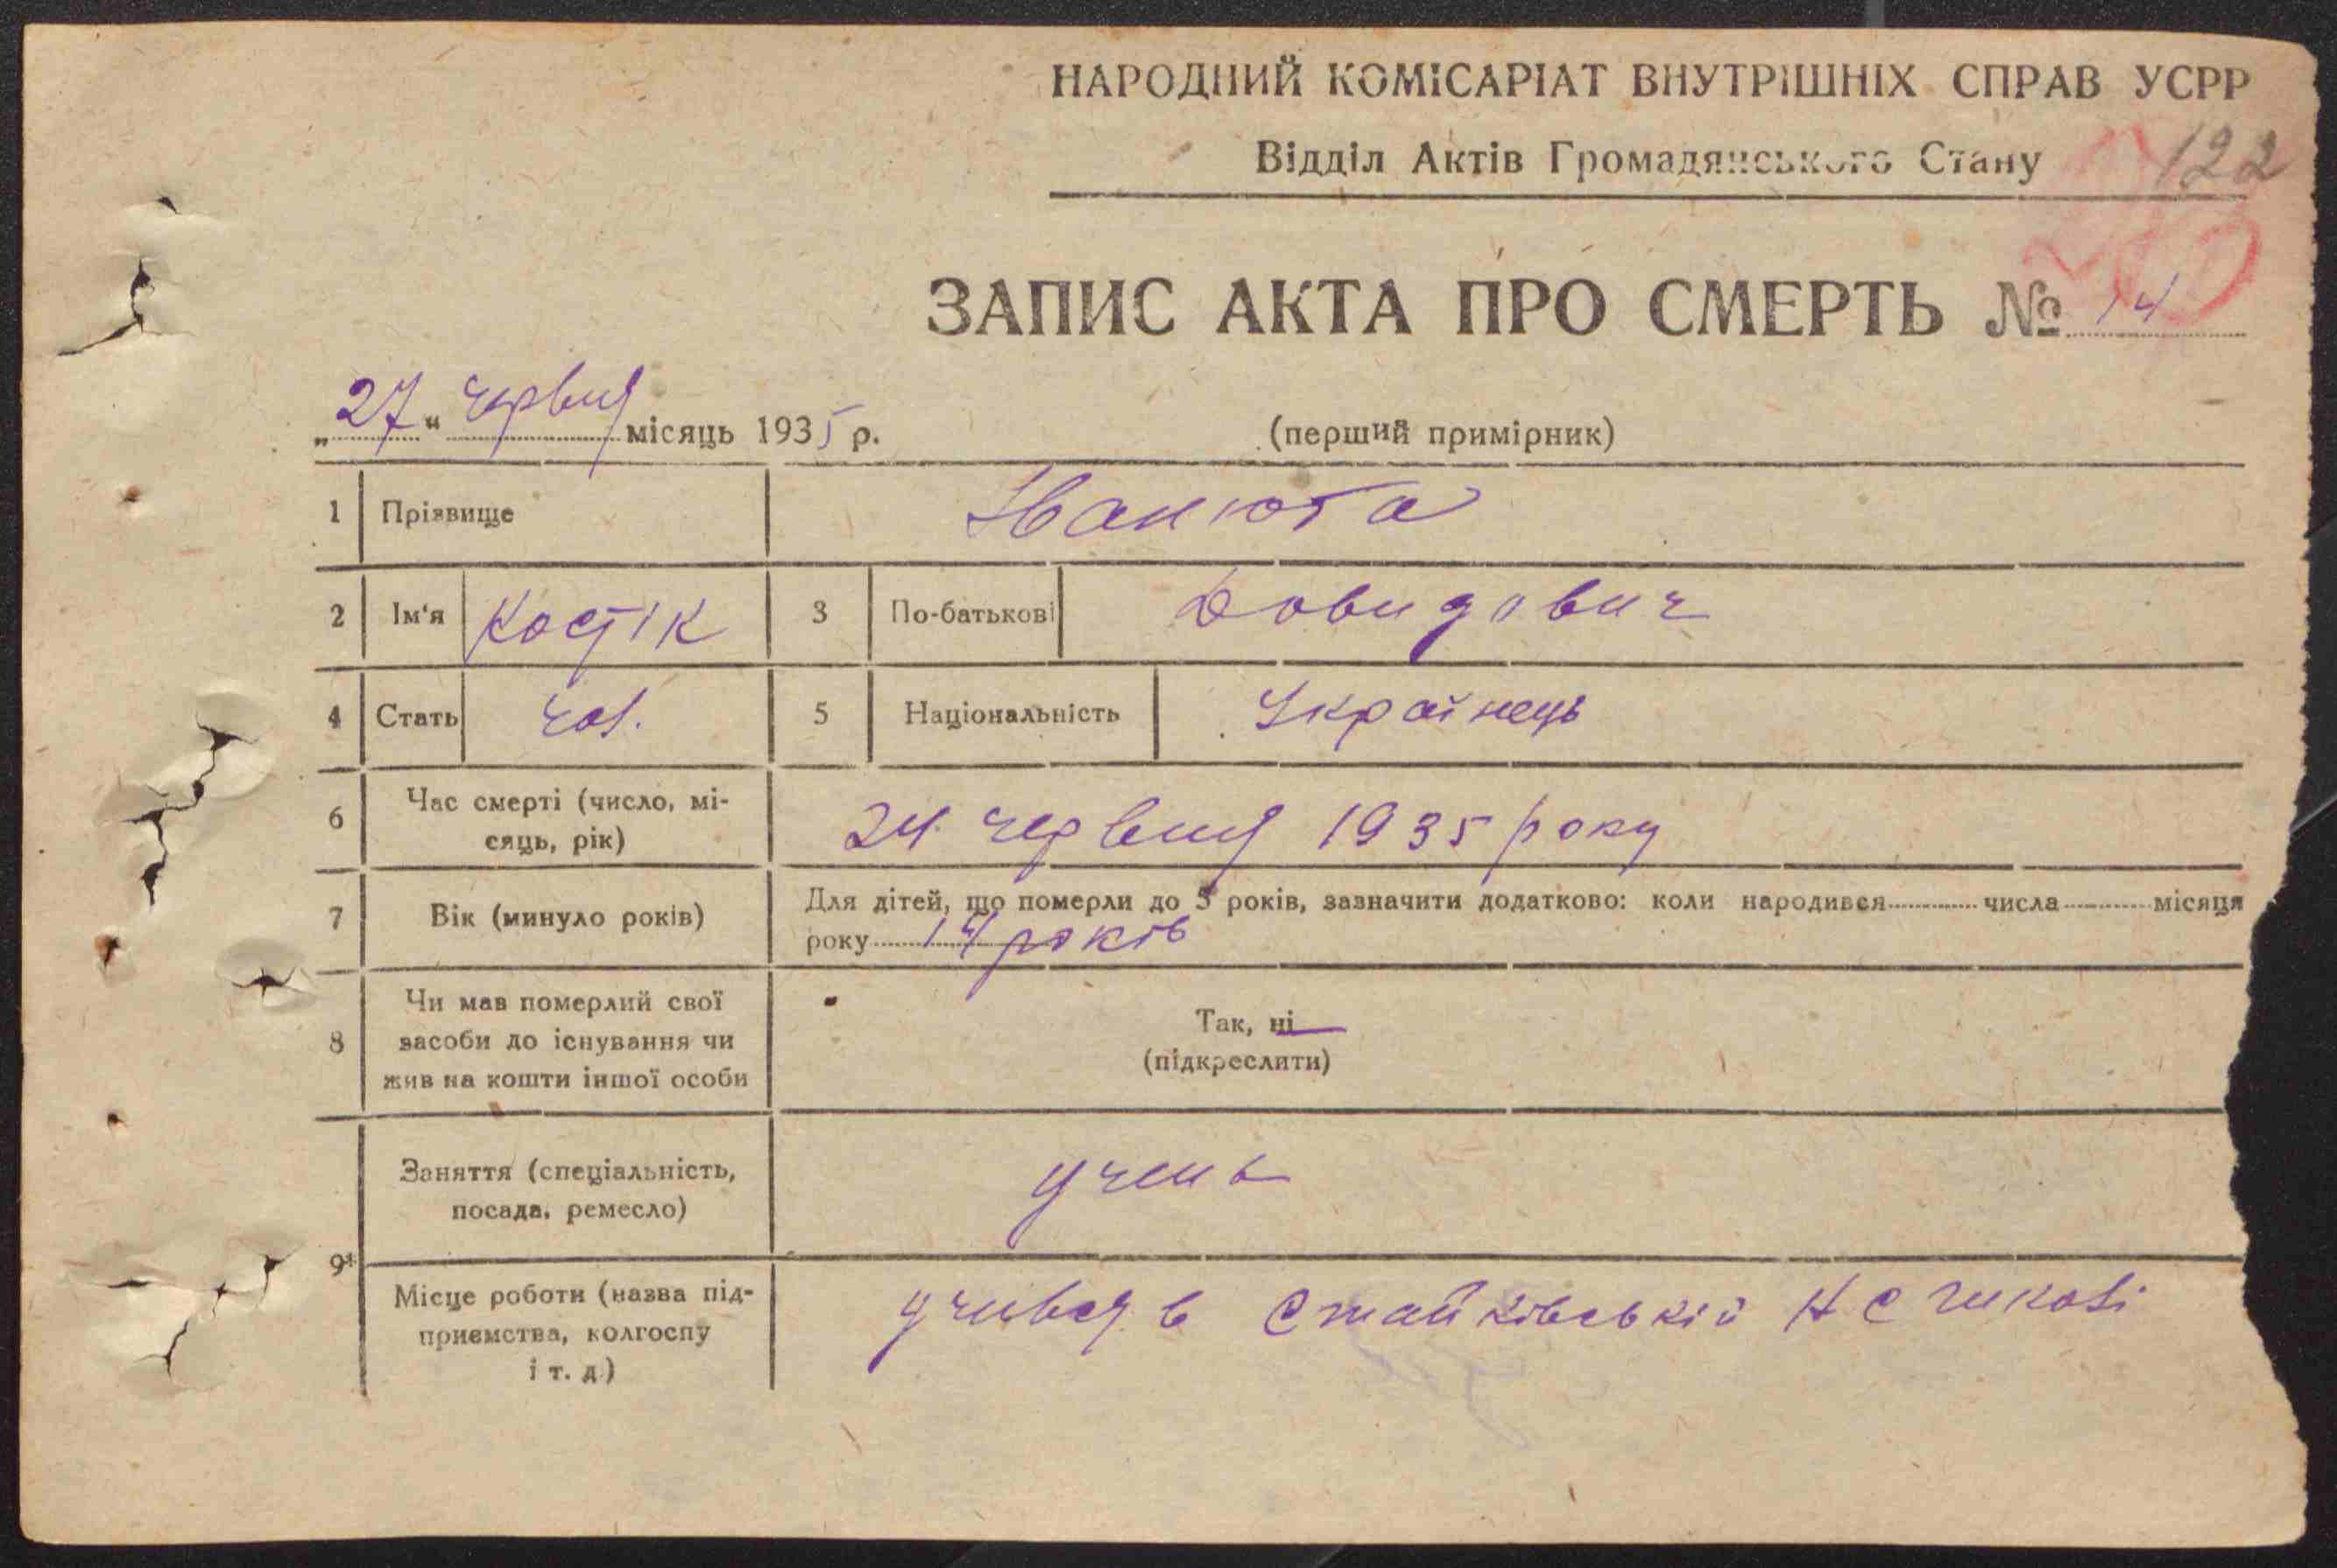 НАРОДНИЙ КОМІСАРІАТ ВНУТРІШНІХ СПРАВ УСРР
Відділ Актів Громадянського Стану 122
ЗАПИС АКТА ПРО СМЕРТЬ № 14
„27“ червня місяць 1935 р. (перший примірник)
1 Прізвище Іванюта
2 Ім'я Костік 3 По-батькові Довидович
4 Стать чол. 5 Національність Українець
6 Час смерті (число, мі-
сяць, рік) 24 червня 1935 року
7 Вік (минуло років) Для дітей, що померли до 5 років, зазначити додатково: коли народився числа місяця
року 14 років
8 Чи мав померлий свої
засоби до існування чи
жив на кошти іншої особи
Так, ні
(підкреслити)
9 Заняття (спеціальність,
посада, ремесло) учень
Місце роботи (назва під-
приємства, колгоспу
і т. д.) учився в Стайківській НС школі